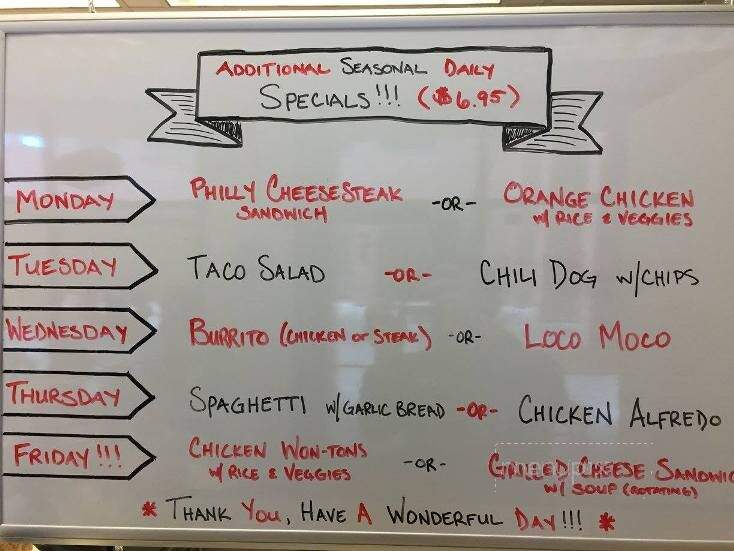 ADDITIONAL SEASONAL DAILY
SPECIALS!!! ($6.95)
MONDAY PHILLY CHEESESTEAK SANDWICH -OR- ORANGE CHICKEN W/ RICE & VEGGIES
TUESDAY TACO SALAD -OR- CHILI DOG W/CHIPS
WEDNESDAY BURRITO (CHICKEN OR STEAK) -OR- LOCO MOCO
THURSDAY SPAGHETTI W/GARLIC BREAD -OR- CHICKEN ALFREDO
FRIDAY!!! CHICKEN WON-TONS W/ RICE & VEGGIES -OR- GRILLED CHEESE SANDWIC W/ SOUP (ROTATING)
* THANK YOU, HAVE A WONDERFUL DAY!!! *